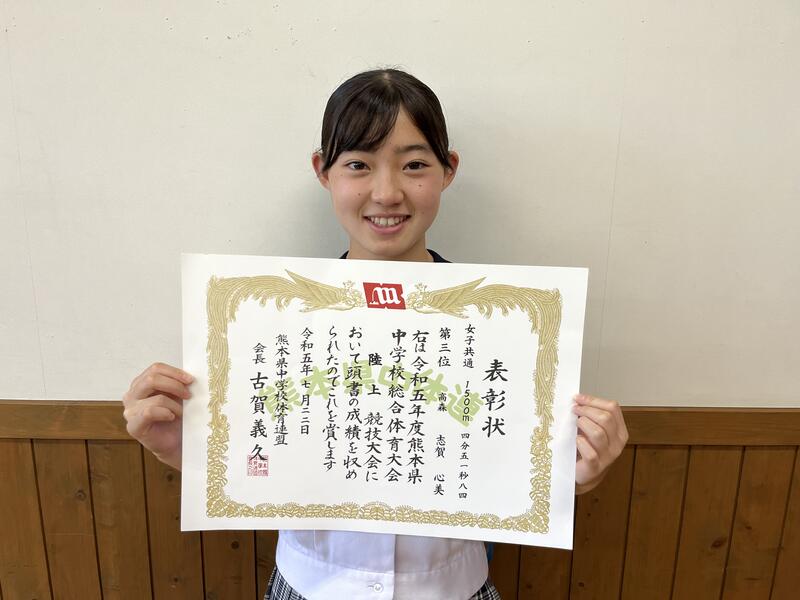 表彰状
女子共通 1500m 四分五一秒八四
第三位 高森 志賀 心美
右は令和五年度熊本県
中学校総合体育大会
陸上競技大会に
おいて頭書の成績を収め
られたのでこれを賞します
令和五年七月二二日
熊本県中学校体育連盟
会長 古賀義久